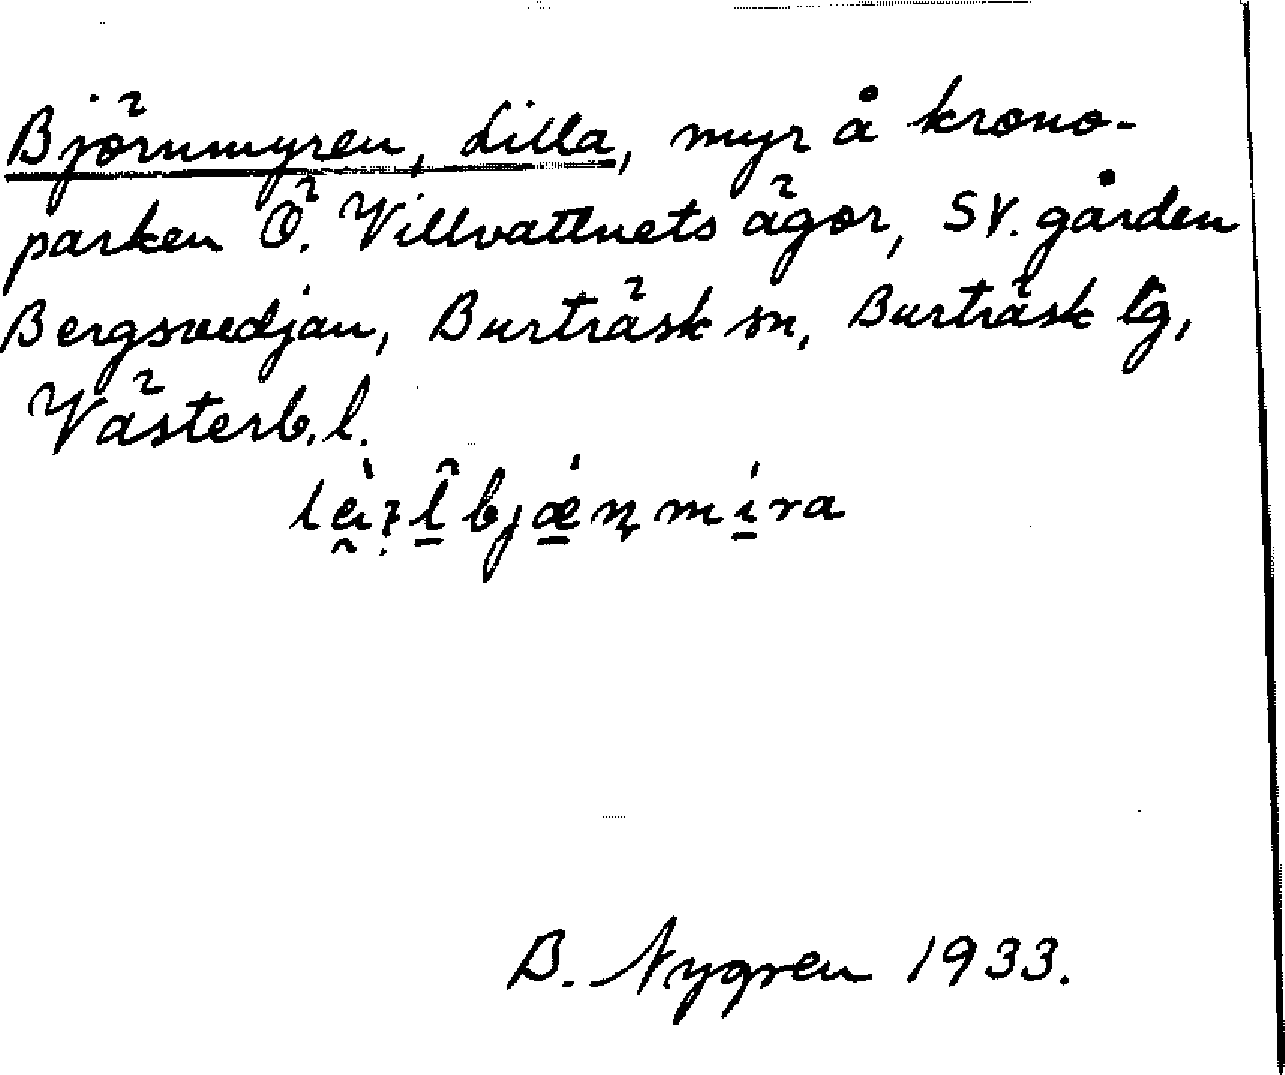 Björnmyren, Lilla, myr å krono-
parken Ö. Villvattnets ägor, SV. gården
Bergsvedjan, Burträsk sn, Burträsk tg,
Västerb. l.
bjǽɳmíra
B. Nygren 1933.